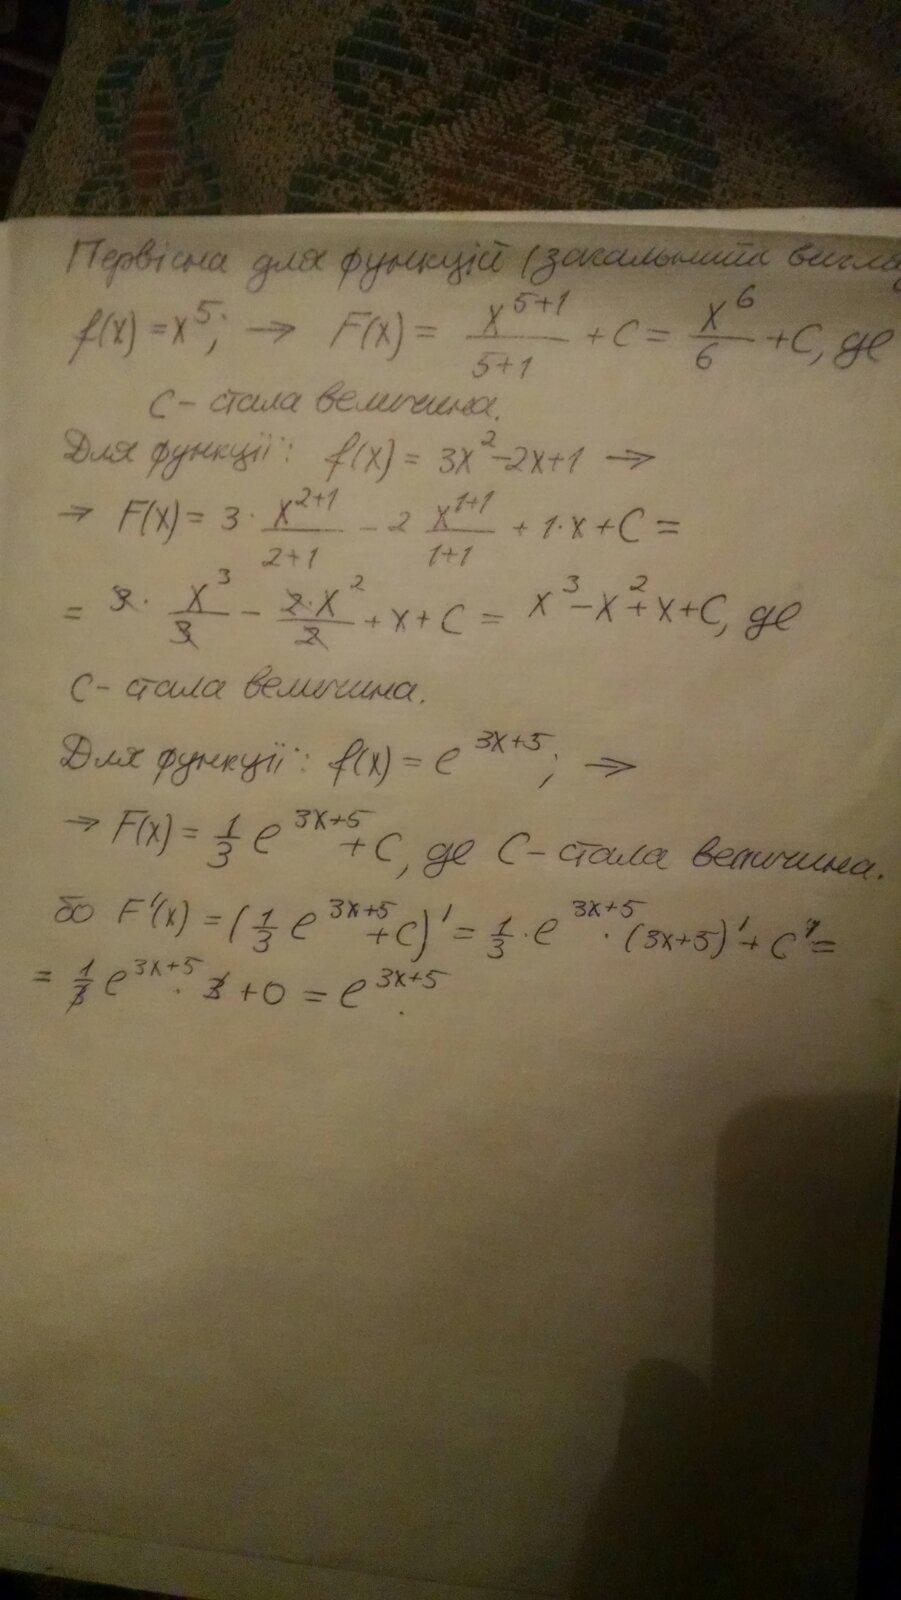 Первісна для функцій (загальний вигля
f(x) = x^5; → F(x) = x^{5+1}/(5+1) + C = x^6/6 + C, де
C - стала величина.
Для функції: f(x) = 3x^2 - 2x + 1 →
→ F(x) = 3 · x^{2+1}/(2+1) - 2 x^{1+1}/(1+1) + 1·x + C =
= 3 · x^3/3 - 2·x^2/2 + x + C = x^3 - x^2 + x + C, де
C - стала величина.
Для функції: f(x) = e^{3x+5}; →
→ F(x) = 1/3 e^{3x+5} + C, де C - стала величина.
бо F'(x) = (1/3 e^{3x+5} + C)' = 1/3 · e^{3x+5} · (3x+5)' + C' =
= 1/3 e^{3x+5} · 3 + 0 = e^{3x+5}.